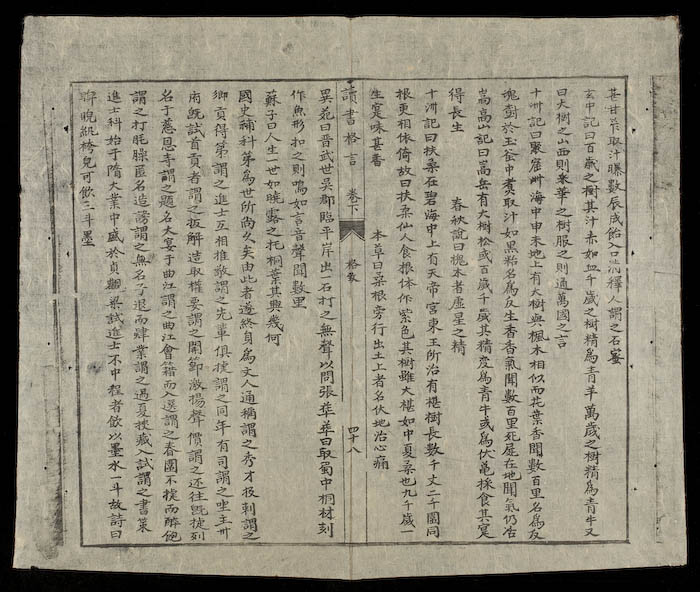 甚甘笮取汁曝數辰成飴入口消釋人謂之石蜜
玄中記曰百歲之樹其汁赤如血千歲之樹精為青羊萬歲之樹精為青牛又
曰大樹之山西則采華之樹服之則通萬國之言
十洲記曰聚窟洲海中申未地上有大樹與楓木相似而花葉香聞數百里名為反
魂樹於玉釜中煑取汁如黑粘名為反生香香氣聞數百里死屍在地聞氣仍活
嵩高山記曰嵩岳有大樹松或百歲千歲其精度為青牛或為伏龜採食其寔
得長生 春秋說曰槐木者虛星之精
十洲記曰扶桑在碧海中上有天帝宮東王所治有椹樹長數千丈二千圍同
根更相依倚故曰扶桑仙人食根体作紫色其樹雖大椹如中夏桑也九千歲一
生寔味甚香 本草曰桑根旁行出土上者名伏地治心痛
讀書格言 卷下 格象 四十八
異苑曰晋武世吳郡臨平岸出一石打之無聲以問張華華曰取蜀中桐材刻
作魚形扣之則鳴如言音聲聞數里
蘇子曰人生一世如曉露之托桐葉其與幾何
國史補科第為世所尚久矣由此者遂終身為文人通稱謂之秀才投刺謂之
鄉貢得第謂之進士互相推敬謂之先輩俱捷謂之同年有司謂之坐主卅
府既試首貢者謂之扳解造取權要謂之開節激揚聲價謂之还往既捷列
名于慈恩寺謂之題名大宴于曲江謂之曲江會籍而入選謂之春圍不捷而醉飽
謂之打毷臊匿名造謗謂之無名子退而肄業謂之過夏挾藏入試謂之書策
進士科始于隋大業中盛於貞觀梁試進士不中程者飲以墨水一斗故詩曰
睥睨紈袴兒可飲三斗墨